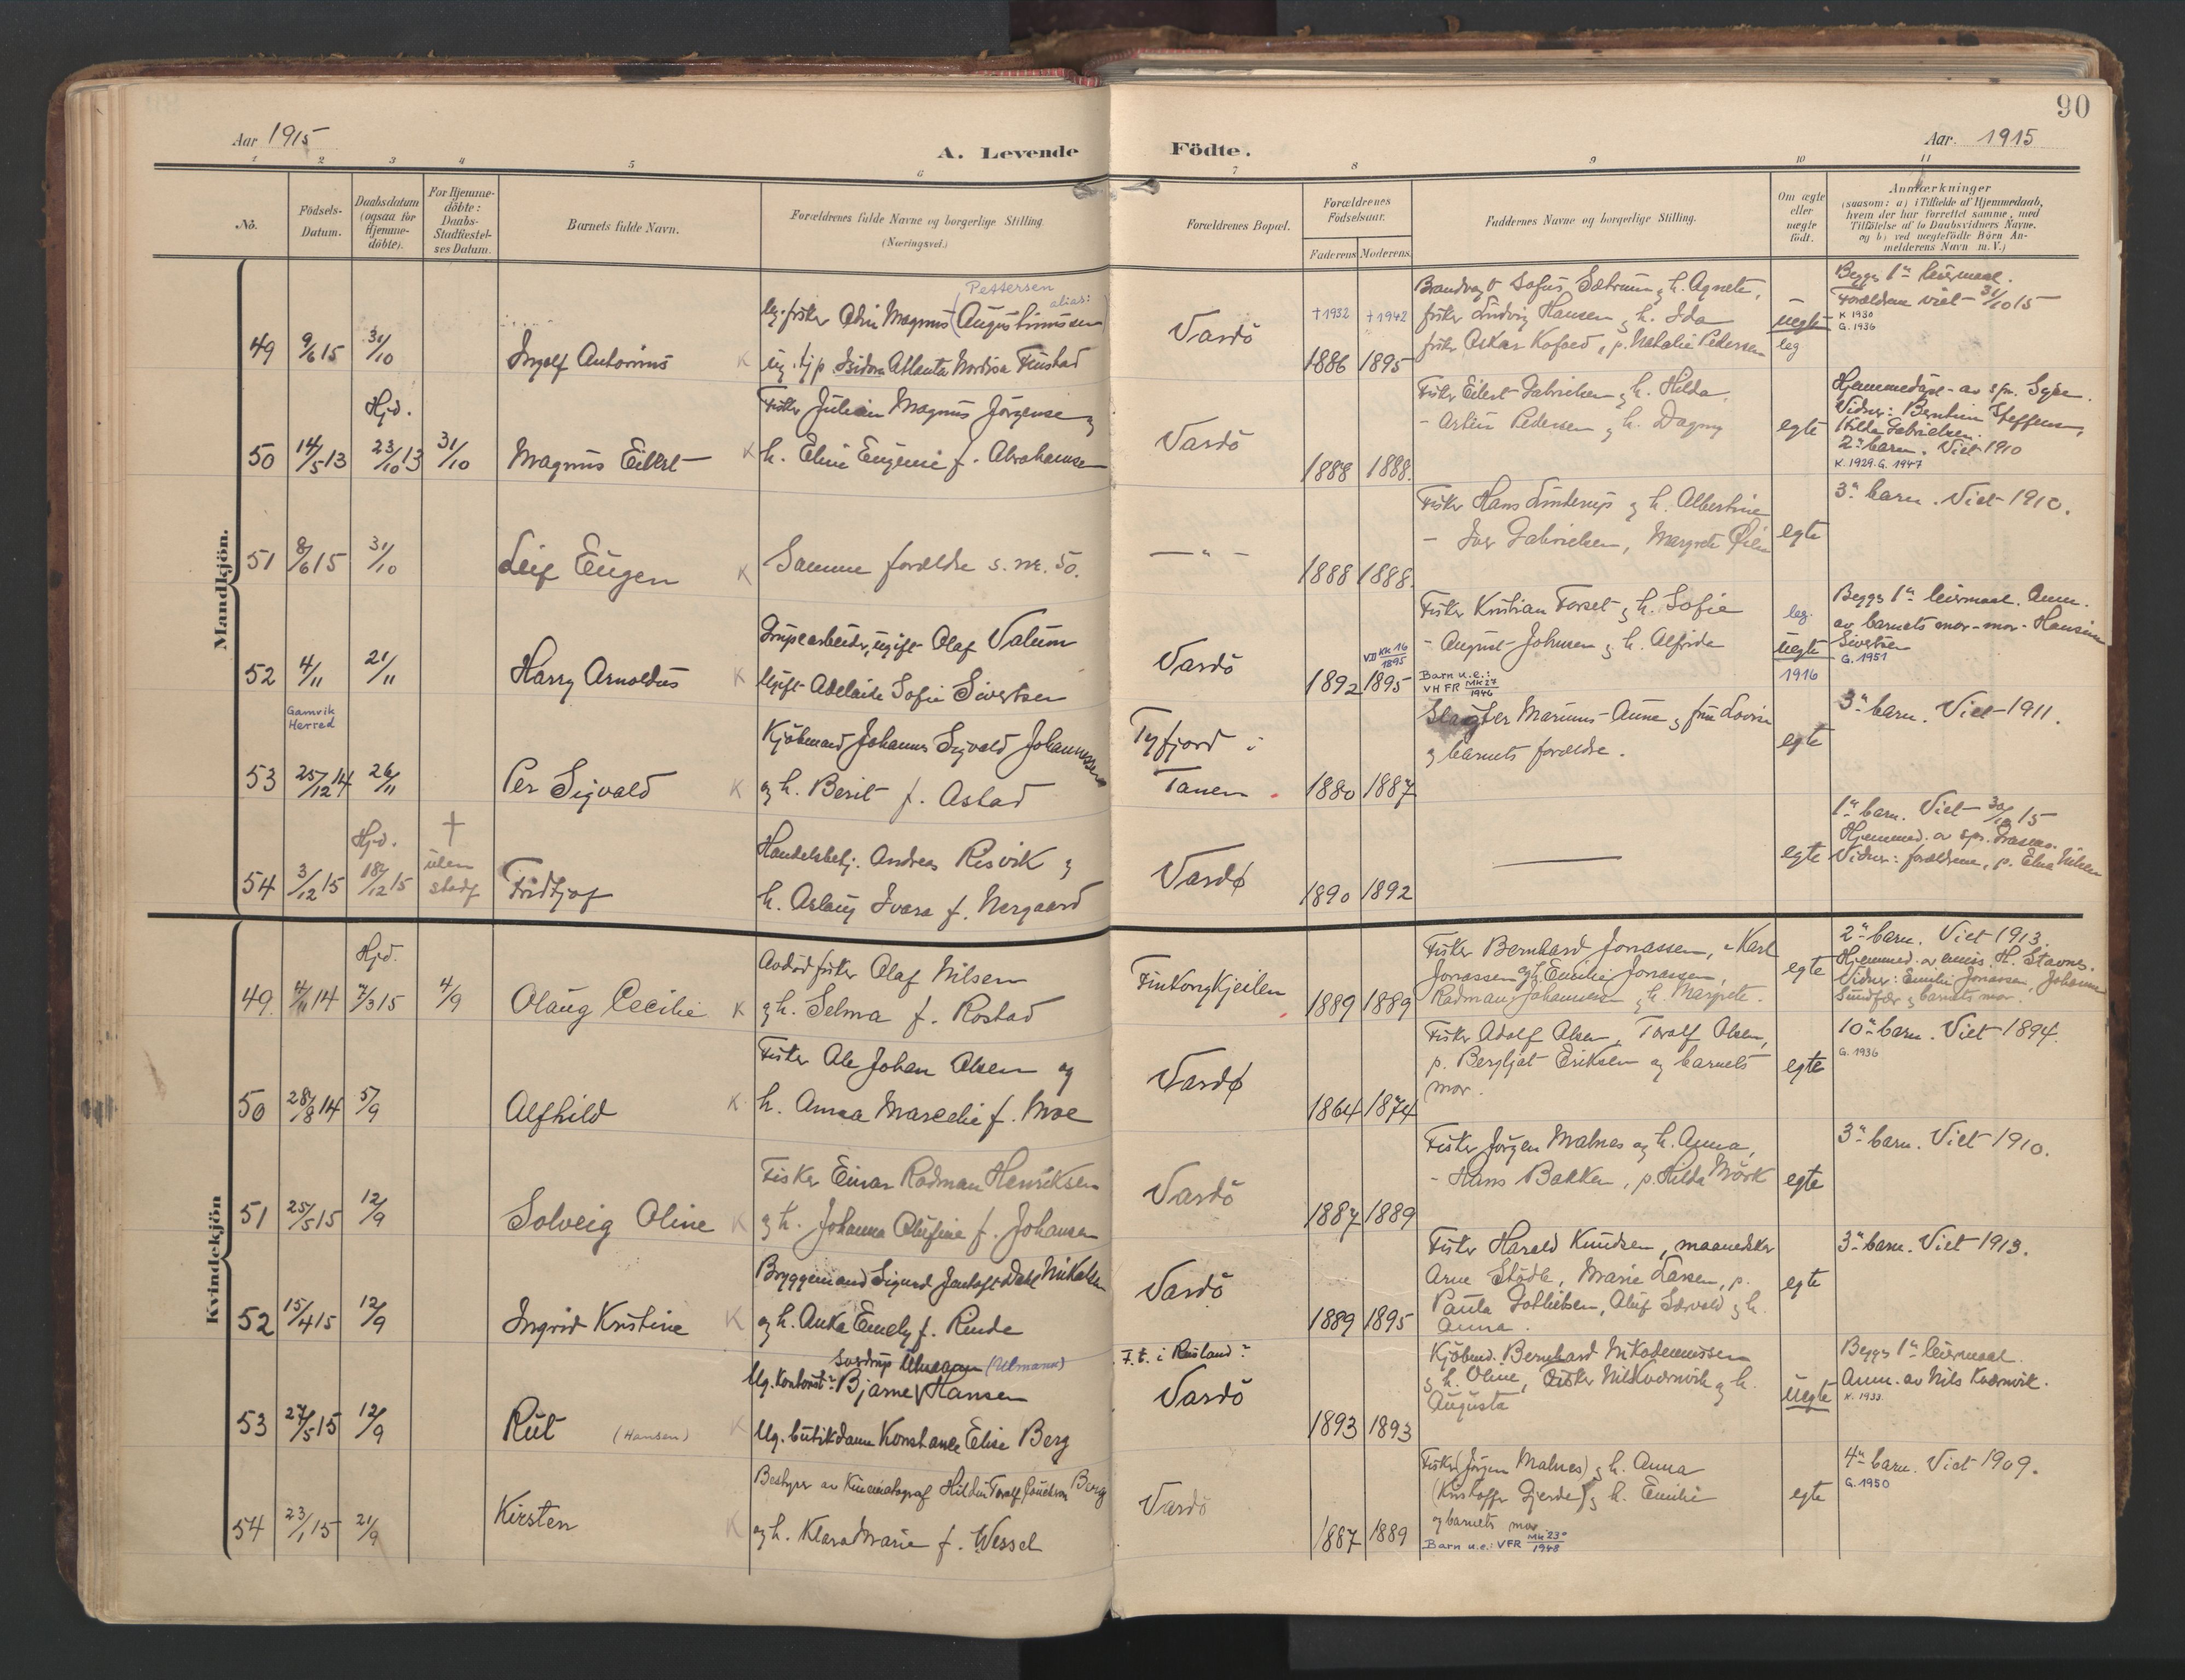 90
Aar 1915
A. Levende Födte.
Aar. 1915
1 2 3 4 5 6 7 8 9 10 11
No.
Födsels-Datum.
Daabsdatum (ogsaa for Hjemme-döbte).
For Hjemme-döbte: Daabs-Stadfæstel-ses Datum.
Barnets fulde Navn.
Forældrenes fulde Navne og borgerlige Stilling.
(Næringsvei.)
Forældrenes Bopæl.
Forældrenes Födselsaar.
Faderens Moderens
Faddernes Navne og borgerlige Stilling.
Om ægte eller uægte födt.
Anmærkninger
(saasom: a) i Tilfælde af Hjemmedaab,
hvem der har forrettet samme, med
Tilföielse af to Daabsvidners Navne,
og b) ved uægtefödte Börn An-
melderens Navn m. V.)
Mandkjön.
49 9/6 15 31/10
Ingolf Antonius K
Pettersen
alias:
ug. fisker Magnus (Augustinussen)
ug. tjp. Isidora Atlanta Nordvor Finstad
Vardö
† 1932 † 1942
1886 1895
Brandvagt Sofus Sætrum og h. Agnete,
fisker Ludvig Hansen og h. Ida
fisker Oskar Kofoed, p. Natalie Pedersen
uegte
leg
Begges 1ste leiermaal.
Forældrene viet 31/10 15
K 1930
G. 1936
50 14/5 13 Hjd. 23/10 13 31/10
Magnus Eilert K
Fisker Julian Magnus Jörgensen og
h. Eline Eugenie f. Abrahamsen
Vardö
1888 1888.
Fisker Eilert Gabrielsen og h. Hilda,
- Pedersen og h. Dagny
egte
Hjemmedöpt av spr.
Vidner: Steffensen,
Hilda Gabrielsen.
2det barn. Viet 1910
K. 1929. G. 1947
51 8/6 15 31/10
Leif Eugen K
Samme forældre s. nr. 50.
— " —
1888 1888.
Fisker Hans Linderup og h. Albertine
- Gabrielsen, Margrete
egte
3die barn. Viet 1910.
52 4/11 21/11
Harry Arnoldus K
Grubearbeider, ugift Olaf Vatum
Ugift Adelaide Sofie Sivertsen
Vardö
VD KK 16 1895
1892 1895
Fisker Kristian Forset og h. Sofie
- August Johnsen og h. Alfrida
Barn u.e.:
VH FR MK 27 1946
leg.
uegte
1916
Begges 1ste leiermaal. Anm.
av barnets mor-mor - Hansine
Sivertsen
G. 1951
Gamvik
Herred
53 25/12 14 26/11
Per Sigvald K
Kjöbmand Johannes Sigvald Johannessen
og h. Berit f. Astad
Tyfjord i
Tanen
1880 1887
Slagter Marinus Aune og fru Lovise
og barnets forældre.
egte
3die barn. Viet 1911.
54 3/12 15 Hjd. 18/12 15 † uten stadf
Fridtjof
Handelsbetj. Andreas Risvik og
h. Aslaug Ivara f. Nergaard
Vardø
1890 1892
———
egte
1ste barn. Viet 30/10 15
Hjemmed. av spr.
Vidner: forældrene, p. Elna Nilsen
Kvindekjön
49. 4/11 14 Hjd. 7/3 15 4/9
Olaug Cecilie K
Avdöd fisker Olaf Nilsen
og h. Selma f. Rostad
Finkongkjeilen
1889 1889
Fisker Bernhard Jonassen, - Karl
Jonassen og h. Emilie Jonassen,
Radman Johannesen og h. Margrete.
egte
2det barn. Viet 1913.
Hjemmed. av emis. H. Stavnes.
Vidner: Emilie Jonassen, Johanne
Sundfær og barnets mor.
50 28/8 14 5/9
Alfhild K
Fisker Ole Johan Olsen og
h. Anna Marcelie f. Moe
Vardø
1864 1874
Fisker Adolf Olsen, Toralf Olsen,
p. Bergljot Eriksen og barnets
mor.
egte
10de barn. Viet 1894.
G. 1936
51 25/5 15 12/9
Solveig Oline K
Fisker Einar Radman Henriksen
og h. Johanna Olufine f. Johansen
Vardö
1887 1889
Fisker Jörgen Malnes og h. Anna,
- Hans Bakken, p. Hilda Mörk
egte
3die barn. Viet 1910.
52 15/4 15 12/9
Ingrid Kristine K
Bryggemand Sigurd Jentoft Dahl Mikalsen
og h. Anka Emely f. Rinde
Vardö
1889 1895
Fisker Harald Knudsen, maanedsker
Arne Stödle, Marie Larsen, p.
Paula Gotliebsen, Oluf Særvold og h.
Anna.
egte
3die barn. Viet 1913.
53 27/5 15 12/9
Rut (Hansen) K
Sverdrup (Ulmann)
Ug. kontorist Bjarne Hansen
Ug. butikdame Konstance Elise Berg
F. t. i Rusland?
Vardö
1893 1893
Kjöbmd. Bernhard Nikodemussen
og h. Oline, Fisker Nils Kvernvik og h.
Augusta
uegte
Begges 1ste leiermaal.
Anm. av Nils Kvernvik.
K. 1933.
54 23/1 15 21/9
Kirsten K
Bestyrer av Kinematograf Hilding Toralf Berg
og h. Klara Marie f. Wessel
Vardö
1887 1889
Fisker (Jörgen Malnes) og h. Anna
(Kristoffer Gjerde) og h. Emilie
og barnets mor
Barn u.e.: VFR MK 23 1948
egte
4de barn. Viet 1909.
G. 1950